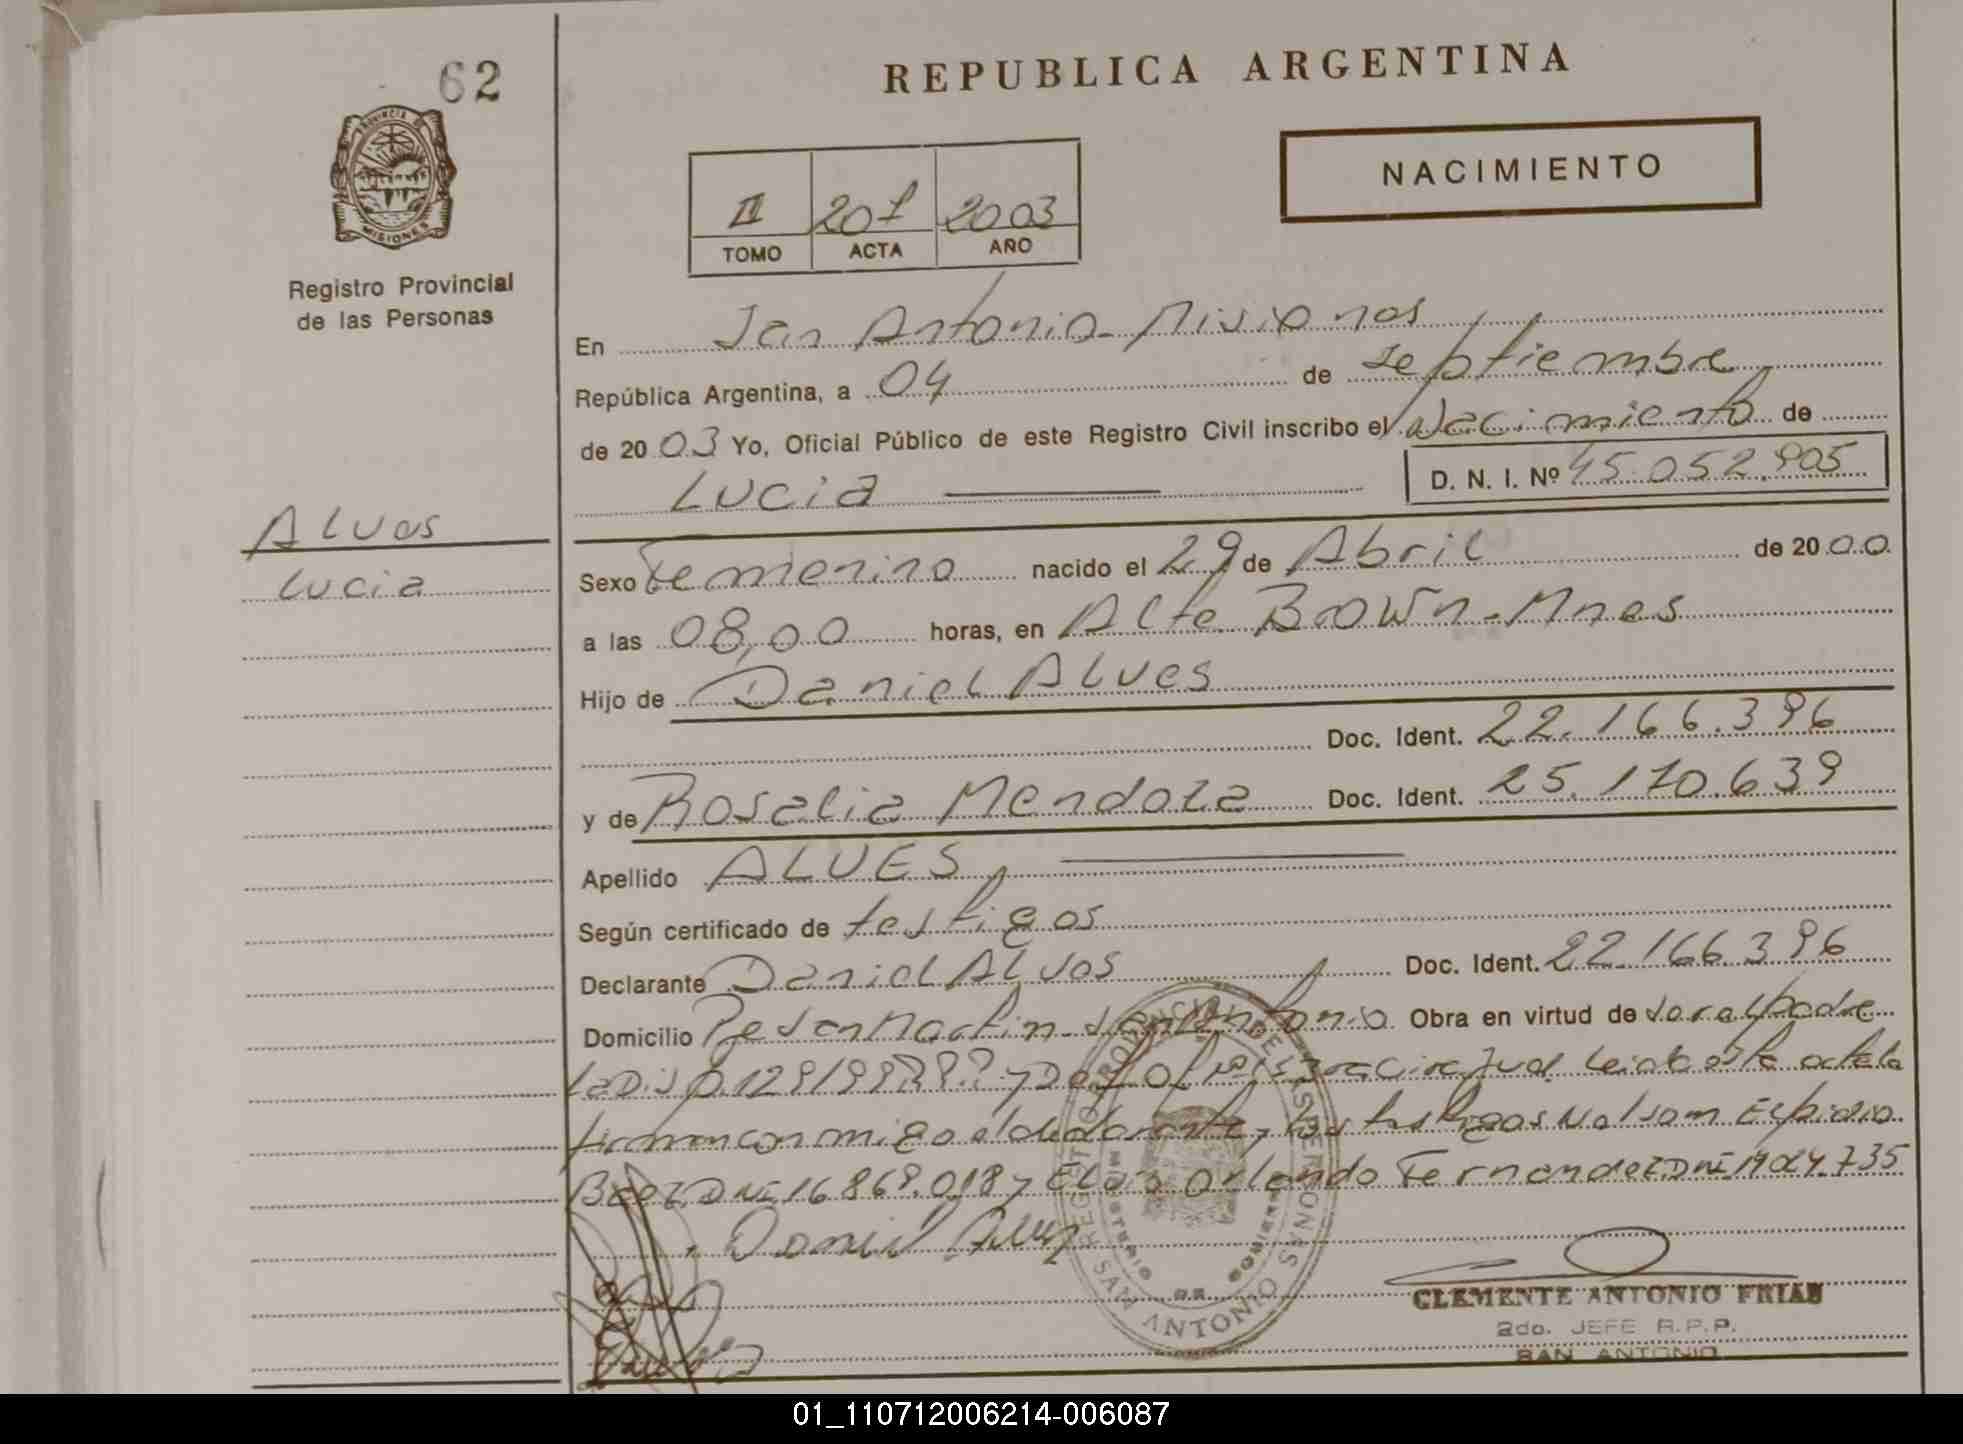 62
REPUBLICA ARGENTINA
NACIMIENTO
PROVINCIA DE
MISIONES
Registro Provincial
de las Personas
II 201 2003
TOMO ACTA AÑO
En San Antonio - Misiones
República Argentina, a 04 de septiembre
de 2003 Yo, Oficial Público de este Registro Civil inscribo el Nacimiento de
Lucia D. N. I. Nº 45.052.905
Alves
Lucia
Sexo Femenino nacido el 29 de Abril de 2000
a las 08,00 horas, en Alte Brown - Mnes
Hijo de Daniel Alves
Doc. Ident. 22.166.396
y de Rosalia Mendoza Doc. Ident. 25.170.639
Apellido ALVES
Según certificado de testigos
Declarante Daniel Alves Doc. Ident. 22.166.396
Domicilio San Martin - San Antonio Obra en virtud de
la Disp. 129/99 y Leida esta acta la
firman conmigo el declarante y los testigos Nelsom Espidio
Baez DNI 16.868.018 y Orlando Fernandez DNI
Daniel Alves
REGISTRO PROVINCIAL DE LAS PERSONAS
MINISTERIO DE GOBIERNO
SAN ANTONIO
CLEMENTE ANTONIO FRIAS
2do. JEFE R.P.P.
SAN ANTONIO
01_110712006214-006087